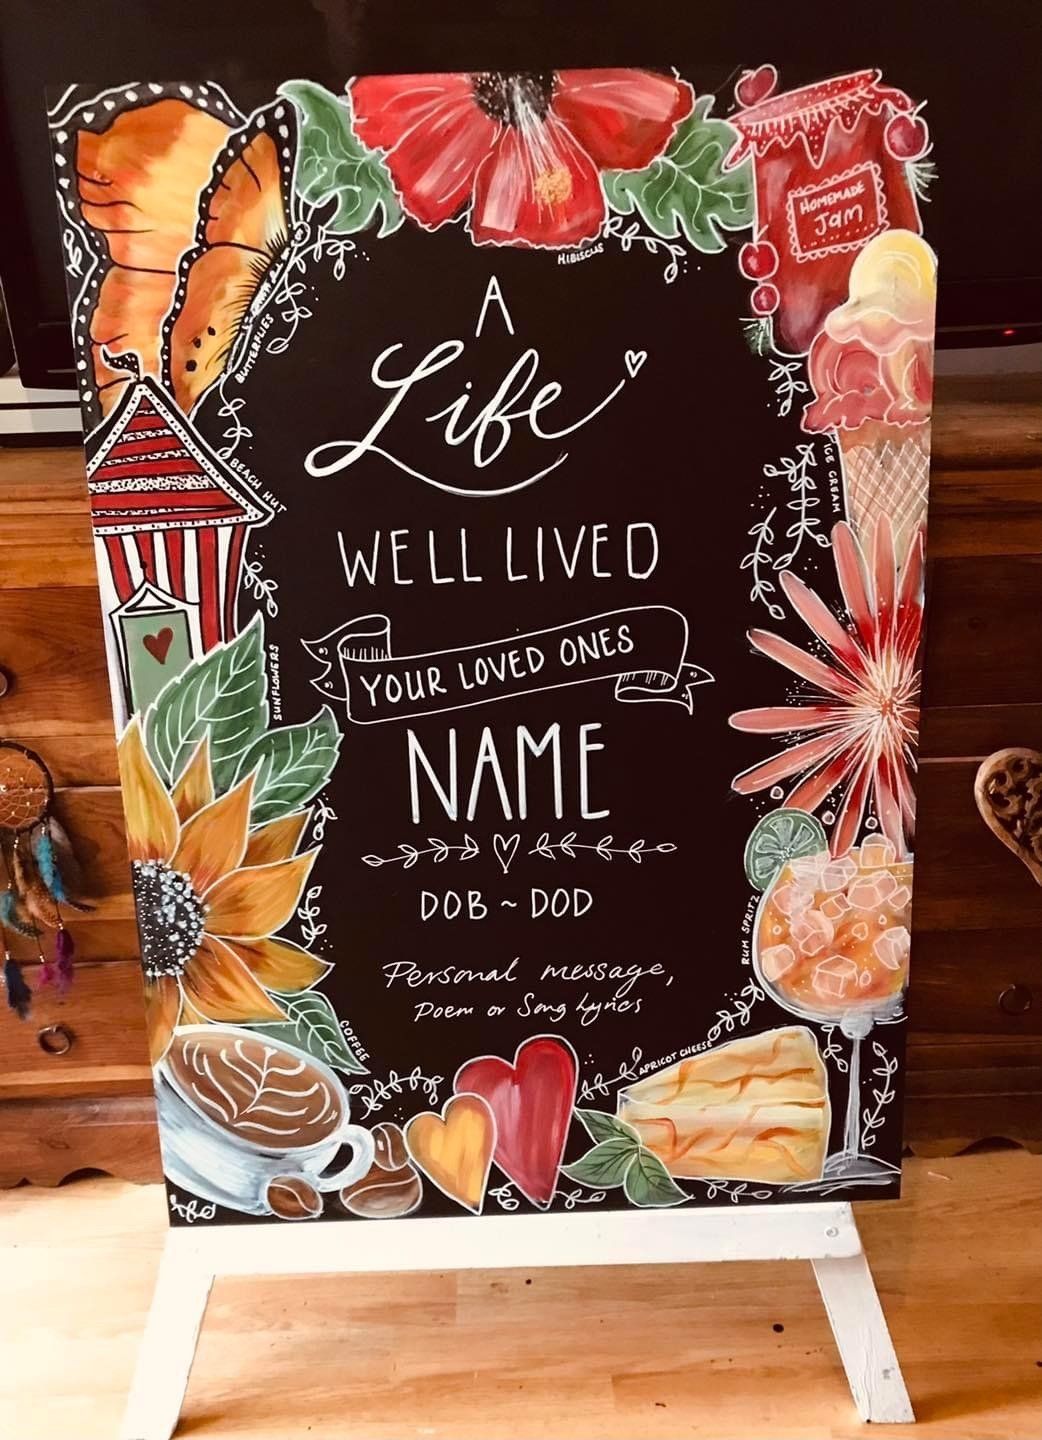 HIBISCUS
HOMEMADE
Jam
BUTTERFLIES
A
Life
WELL LIVED
BEACH HUT
ICE CREAM
YOUR LOVED ONES
NAME
SUNFLOWERS
DOB ~ DOD
RUM SPRITZ
Personal message,
Poem or Song Lyrics
COFFEE
APRICOT CHEESE